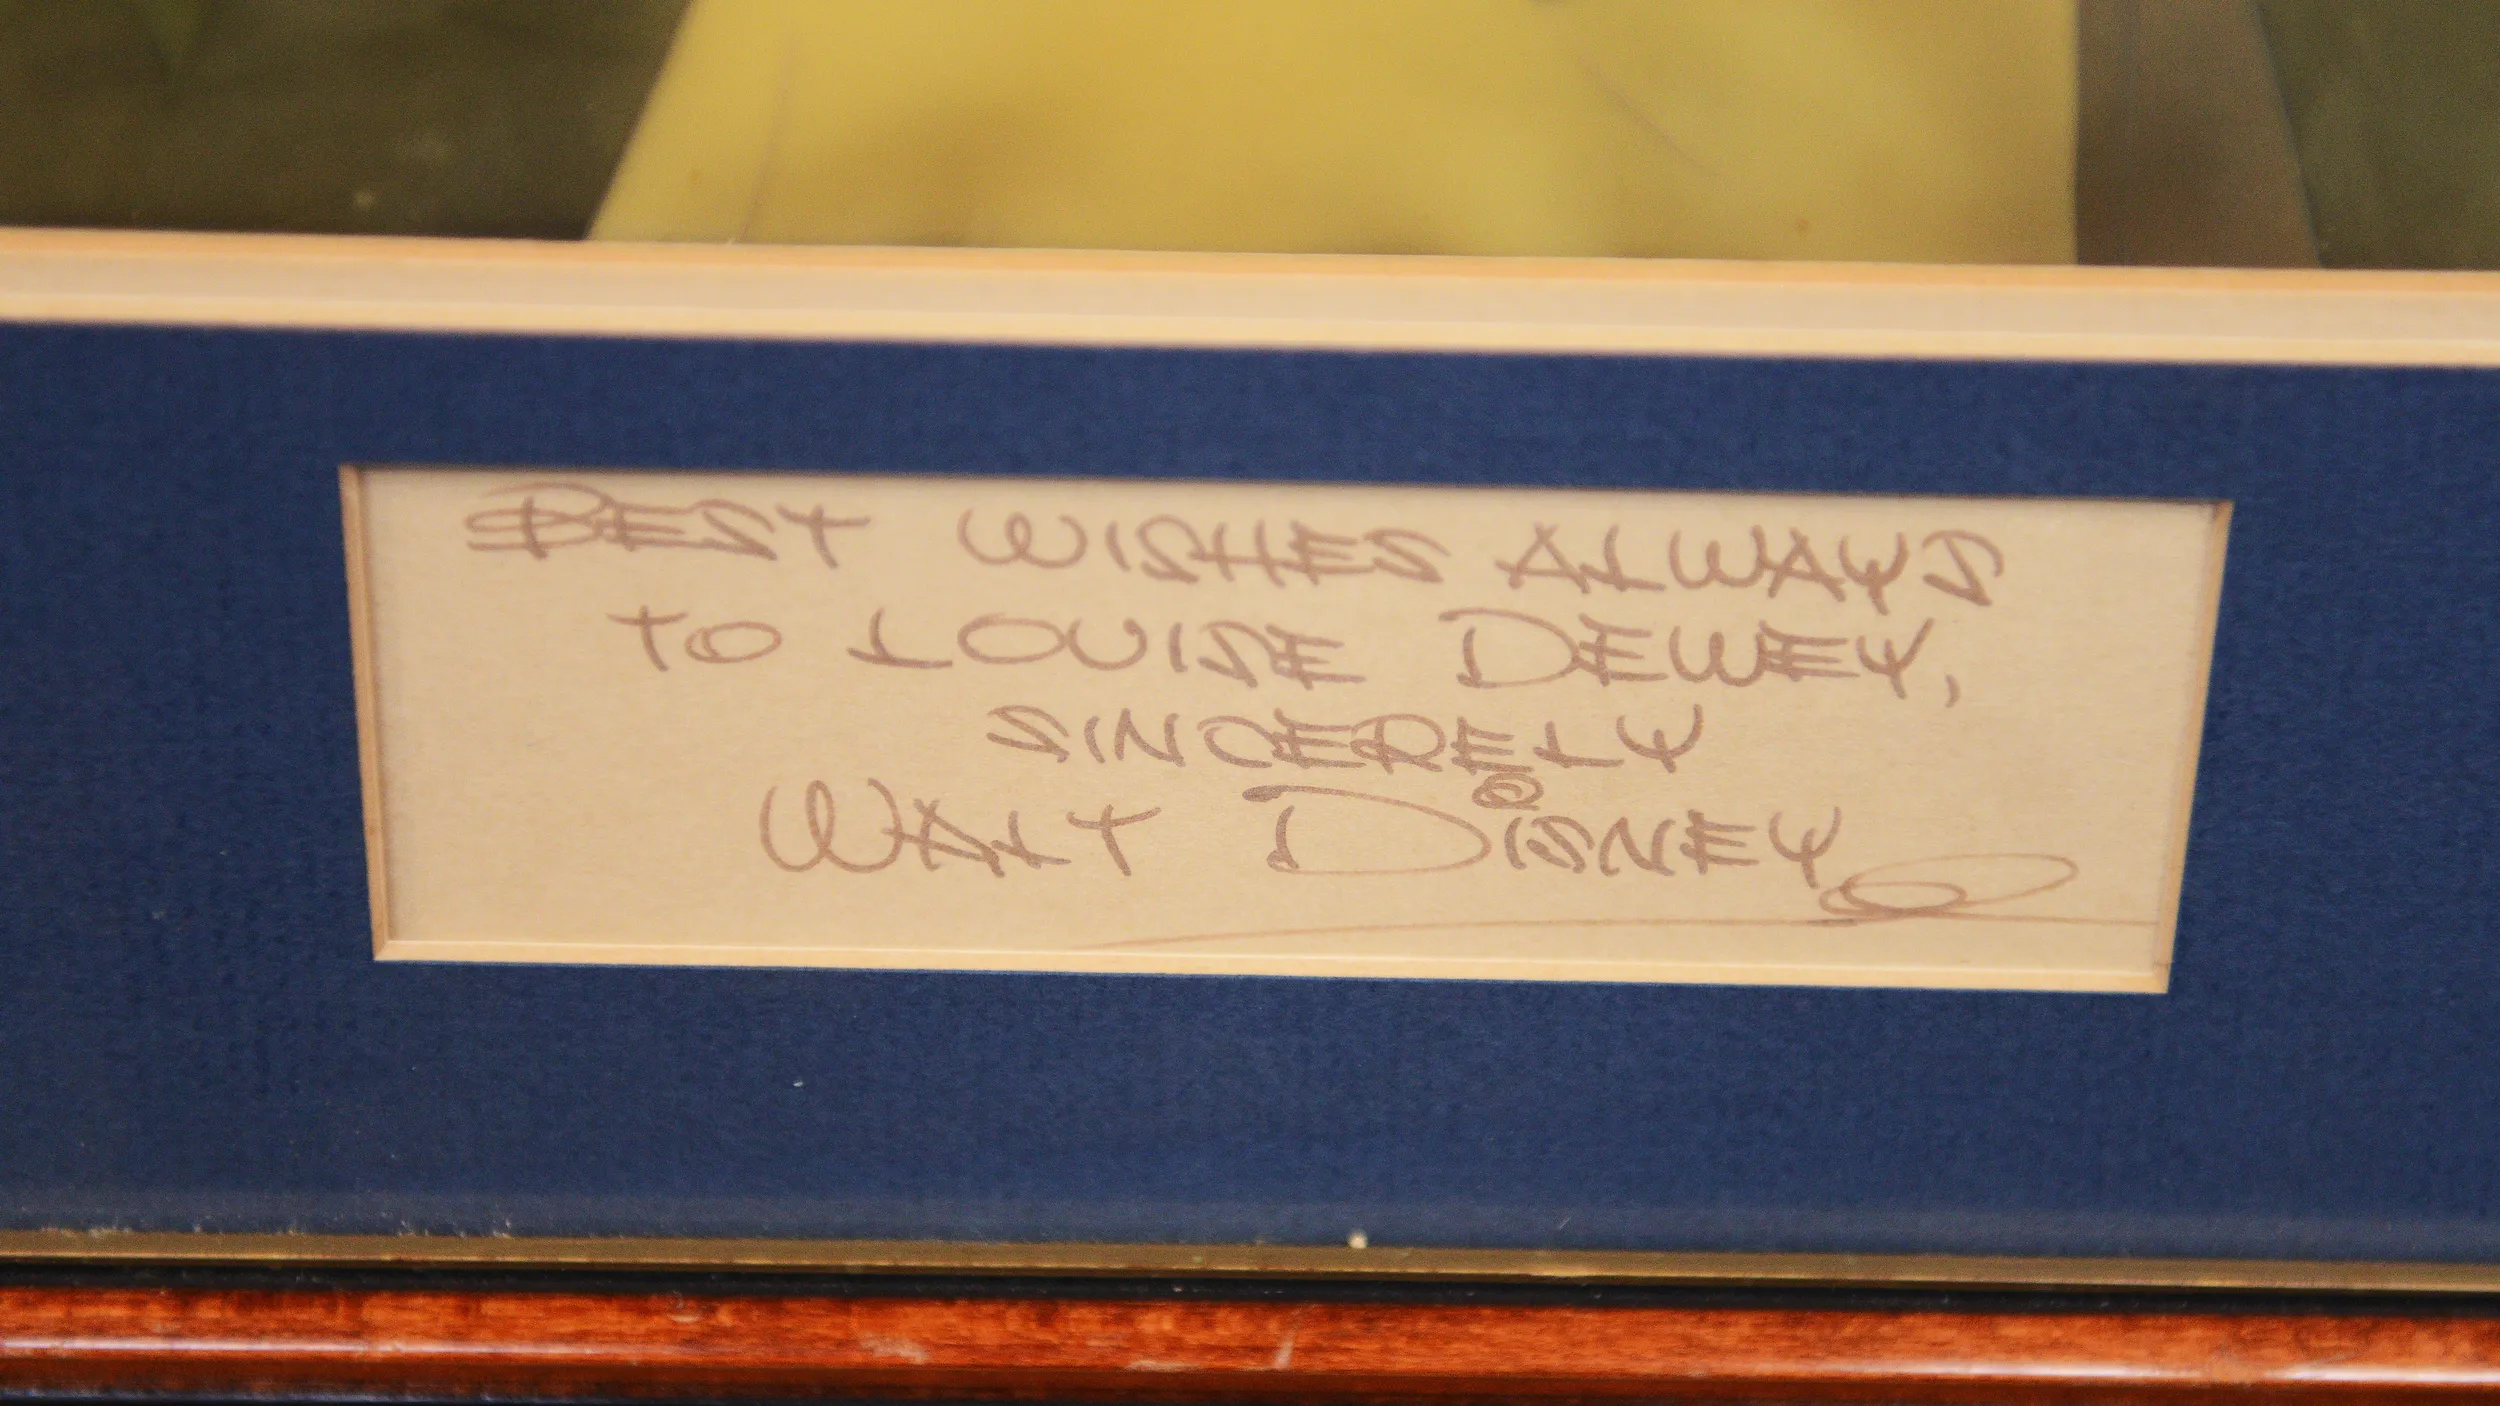 BEST WISHES ALWAYS
TO LOUISE DEWEY,
SINCERELY
WALT DISNEY